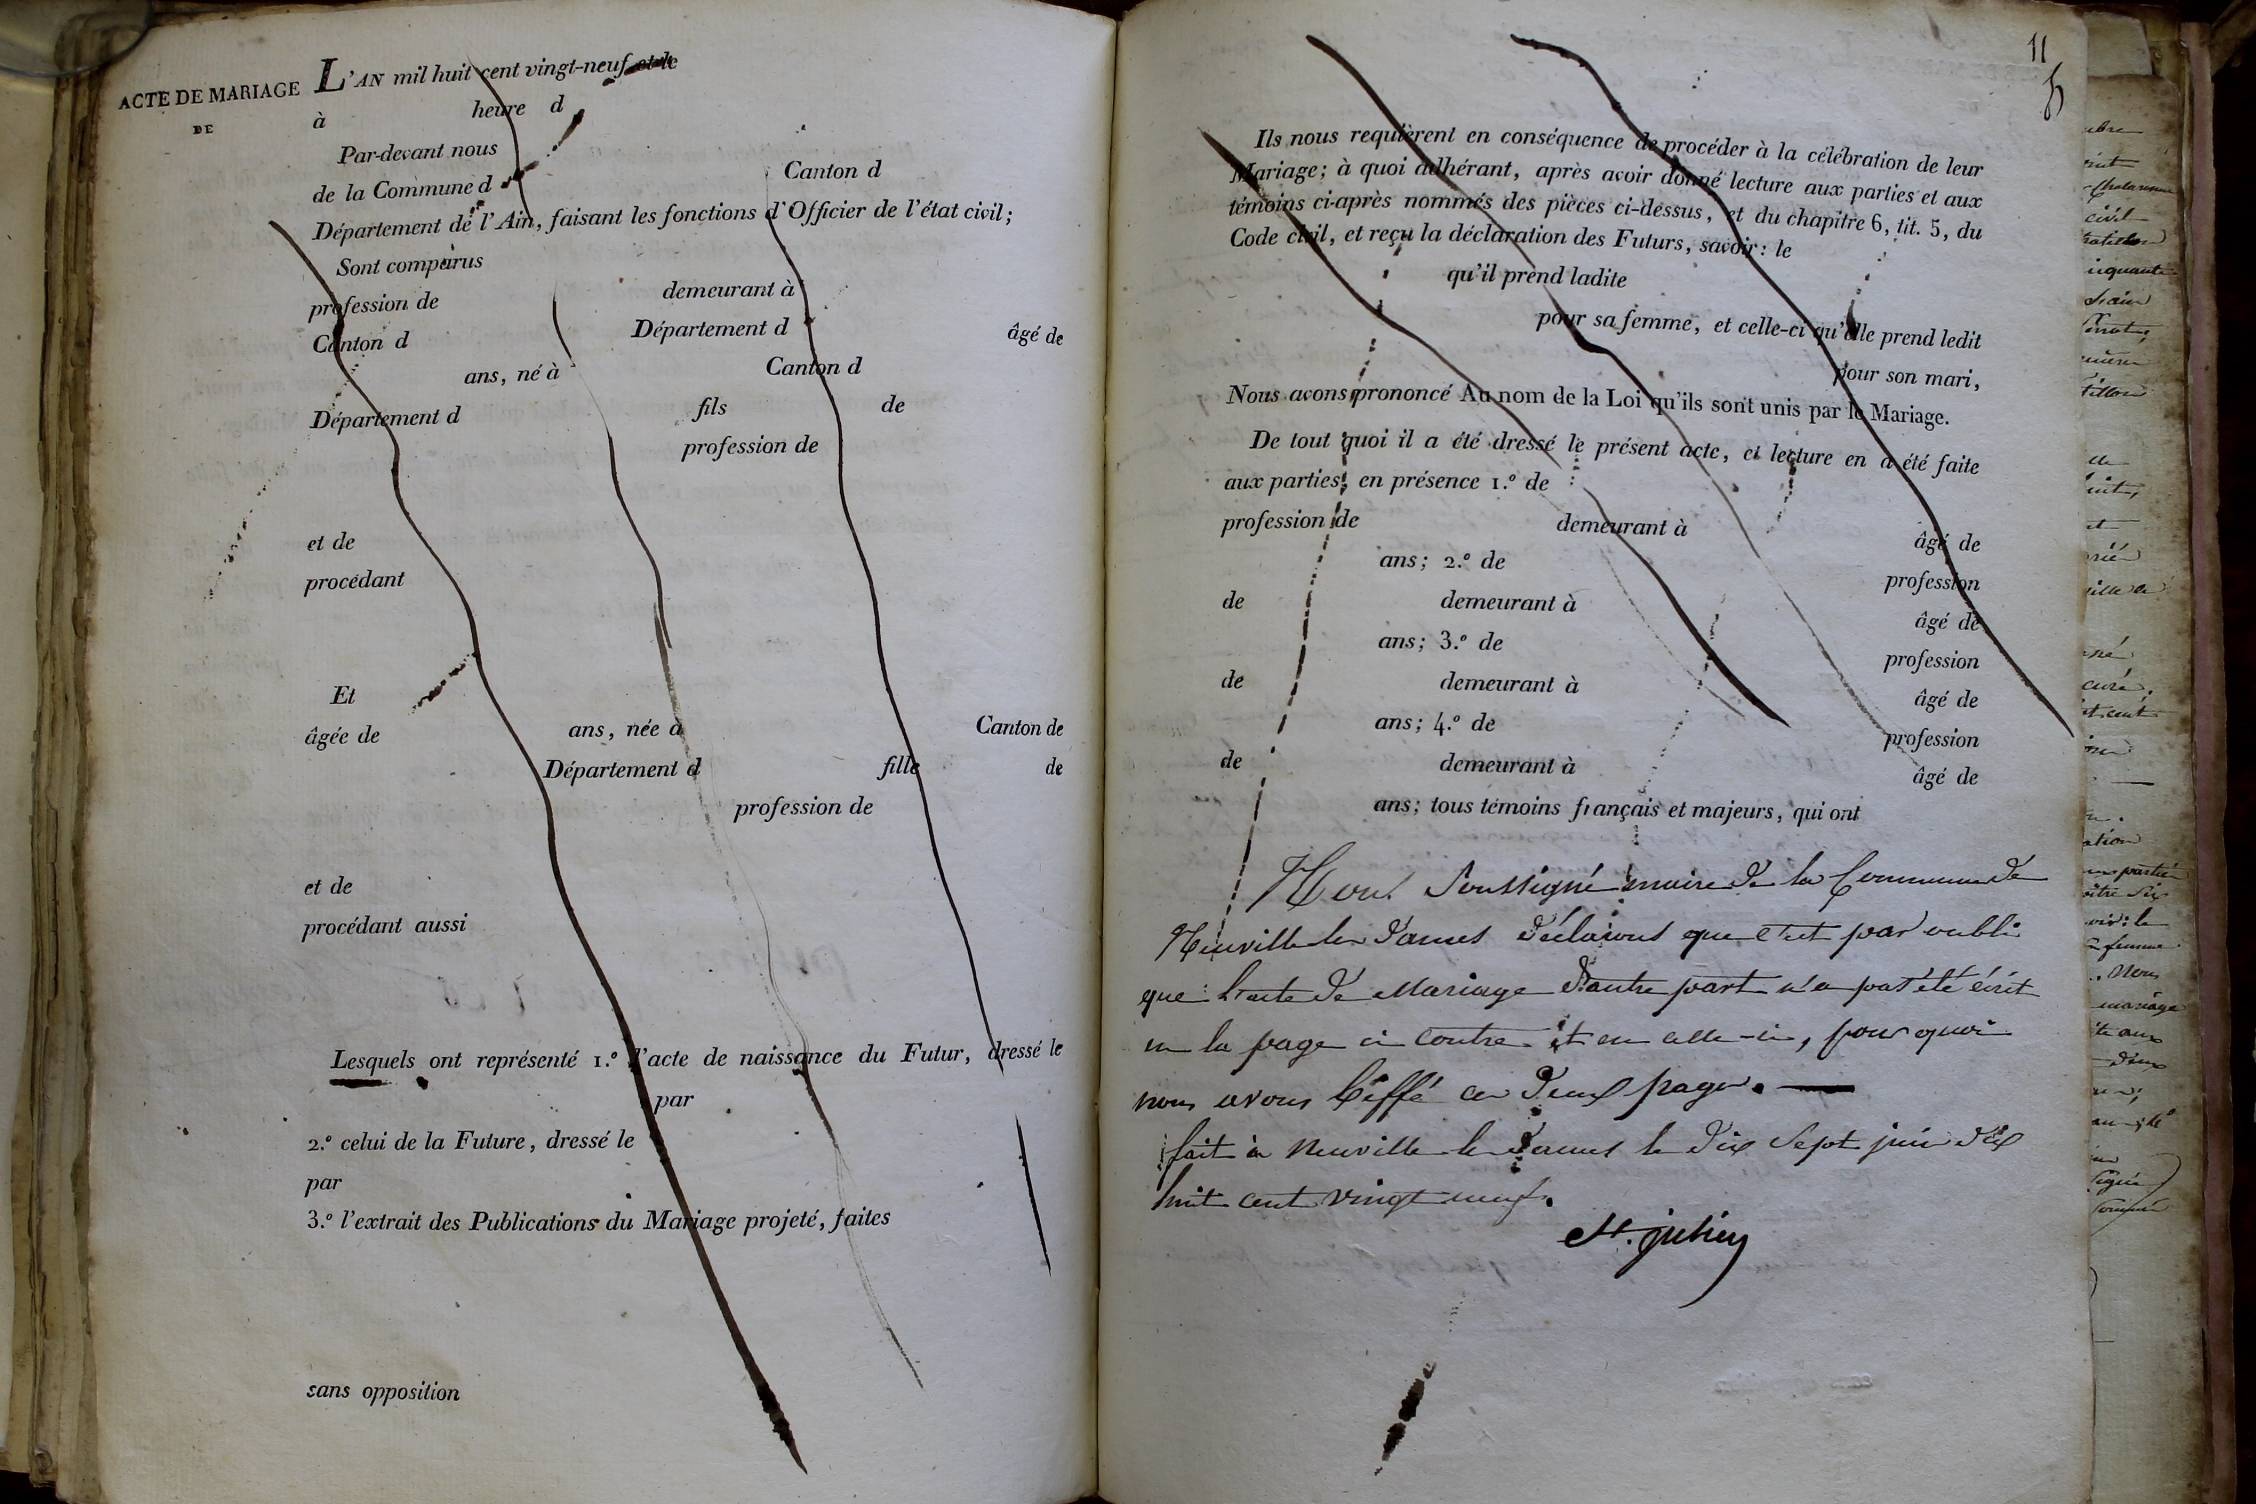 ACTE DE MARIAGE
DE
L'AN mil huit cent vingt-neuf et le
à heure d
Par-devant nous
de la Commune d Canton d
Département de l'Ain, faisant les fonctions d'Officier de l'état civil;
Sont comparus
profession de demeurant à
Canton d Département d âgé de
ans, né à Canton d
Département d fils de
profession de
et de
procédant
Et
âgée de ans, née à Canton de
Département d fille de
profession de
et de
procédant aussi
Lesquels ont représenté 1.º l'acte de naissance du Futur, dressé le
par
2.º celui de la Future, dressé le
par
3.º l'extrait des Publications du Mariage projeté, faites
sans opposition
11
Ils nous requièrent en conséquence de procéder à la célébration de leur
Mariage; à quoi adhérant, après avoir donné lecture aux parties et aux
témoins ci-après nommés des pièces ci-dessus, et du chapitre 6, tit. 5, du
Code civil, et reçu la déclaration des Futurs, savoir: le
qu'il prend ladite
pour sa femme, et celle-ci qu'elle prend ledit
pour son mari,
Nous avons prononcé Au nom de la Loi qu'ils sont unis par le Mariage.
De tout quoi il a été dressé le présent acte, et lecture en a été faite
aux parties, en présence 1.º de
profession de demeurant à âgé de
ans; 2.º de profession
de demeurant à âgé de
ans; 3.º de profession
de demeurant à âgé de
ans; 4.º de profession
de demeurant à âgé de
ans; tous témoins français et majeurs, qui ont
Nous Soussigné maire de la Commune de
Neuville les Dames déclarons que c'est par oubli
que l'acte de Mariage d'autre part n'a pas été écrit
en la page ci contre et en celle-ci, pour quoi
nous avons biffé ces deux pages.
fait à Neuville les Dames le dix Sept juin dix
huit cent vingt neuf.
St. julien